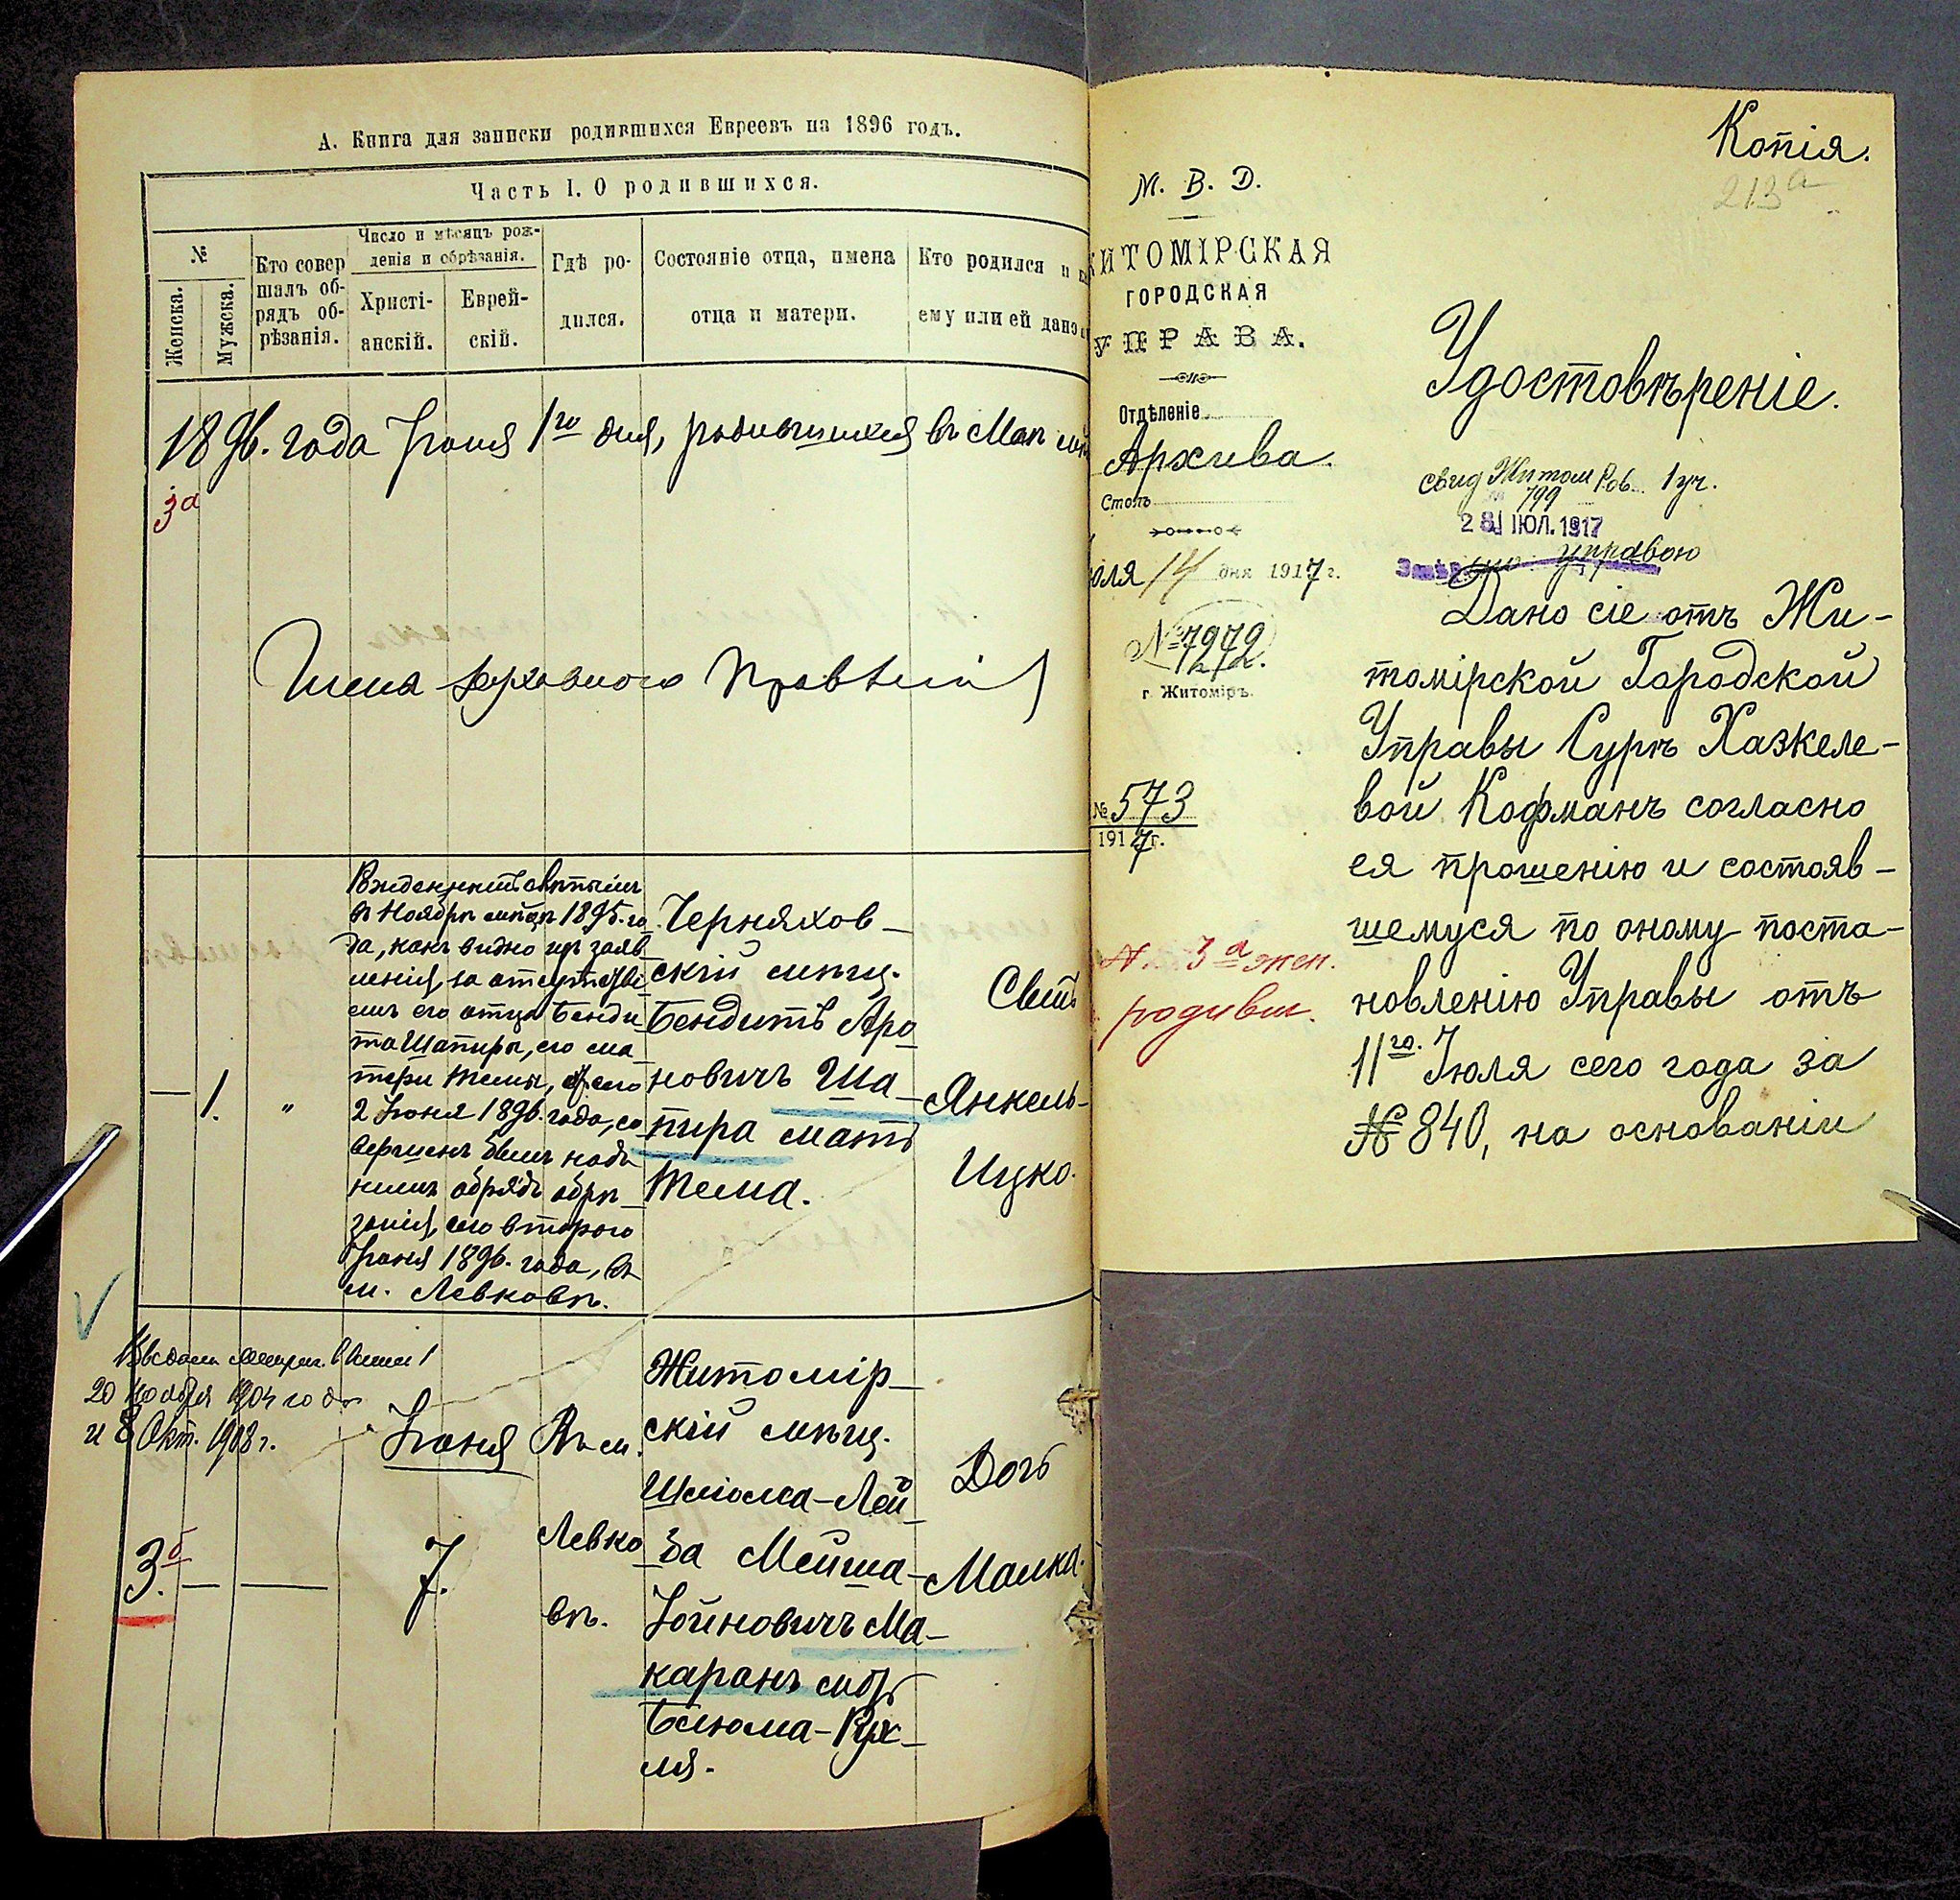 А. Книга для записки родившихся Евреевъ на 1896 годъ.
Часть I. О родившихся.
№
Женска.
Мужска.
Кто совер
шалъ об-
рядъ об-
рѣзанія.
Число и мѣсяцъ рож-
денія и обрѣзанія.
Христі-
анскій.
Еврей-
скій.
Гдѣ ро-
дился.
Состояніе отца, имена
отца и матери.
Кто родился и
ему или ей дано
1896. года Іюня 1го дня, родившихся въ Маѣ
3а
Члена духовного Правленій
въ Ноябрѣ мѣсяцѣ 1895. го
да, какъ видно изъ заяв
ленія, за отсутстві
емъ его отца Бенди
та Шапиры, его ма
тери Темы, сего
2 Іюня 1896. года, со
вершенъ былъ надъ
нимъ обрядъ обрѣ
занія, сего второго
Іюня 1896. года, въ
м. Левковѣ.
— 1. "
Черняхов-
скій мѣщ.
Бендитъ Аро
новичъ Ша-
пира мать
Тема.
Сынъ
Янкель-
Ицко.
20 Ноября 1904 года
и 8 Окт. 1908 г.
3.б — —
Іюня
7.
Въ м.
Левко
вѣ.
Житомір-
скій мѣщ.
Шлiома-Лей
ба Мейша-
Іойновичъ Ма-
каранъ мать
Блюма-Рух-
ля.
Дочь
Малка.
Копія.
213а
М. В. Д.
ИТОМІРСКАЯ
ГОРОДСКАЯ
УПРАВА.
Отдѣленіе
Архива.
Столъ
юля 14 дня 1917 г.
№ 7979
1272.
г. Житоміръ.
№ 573
1917 г.
№ 3а жен.
родивш.
Удостовѣреніе.
свид Житом Рав. 1 уч.
799
28 ІЮЛ. 1917
управою
Дано сіе отъ Жи-
томірской Городской
Управы Сурѣ Хазкеле-
вой Кофманъ согласно
ея прошенію и состояв-
шемуся по оному поста-
новленію Управы отъ
11го. Іюля сего года за
№ 840, на основаніи